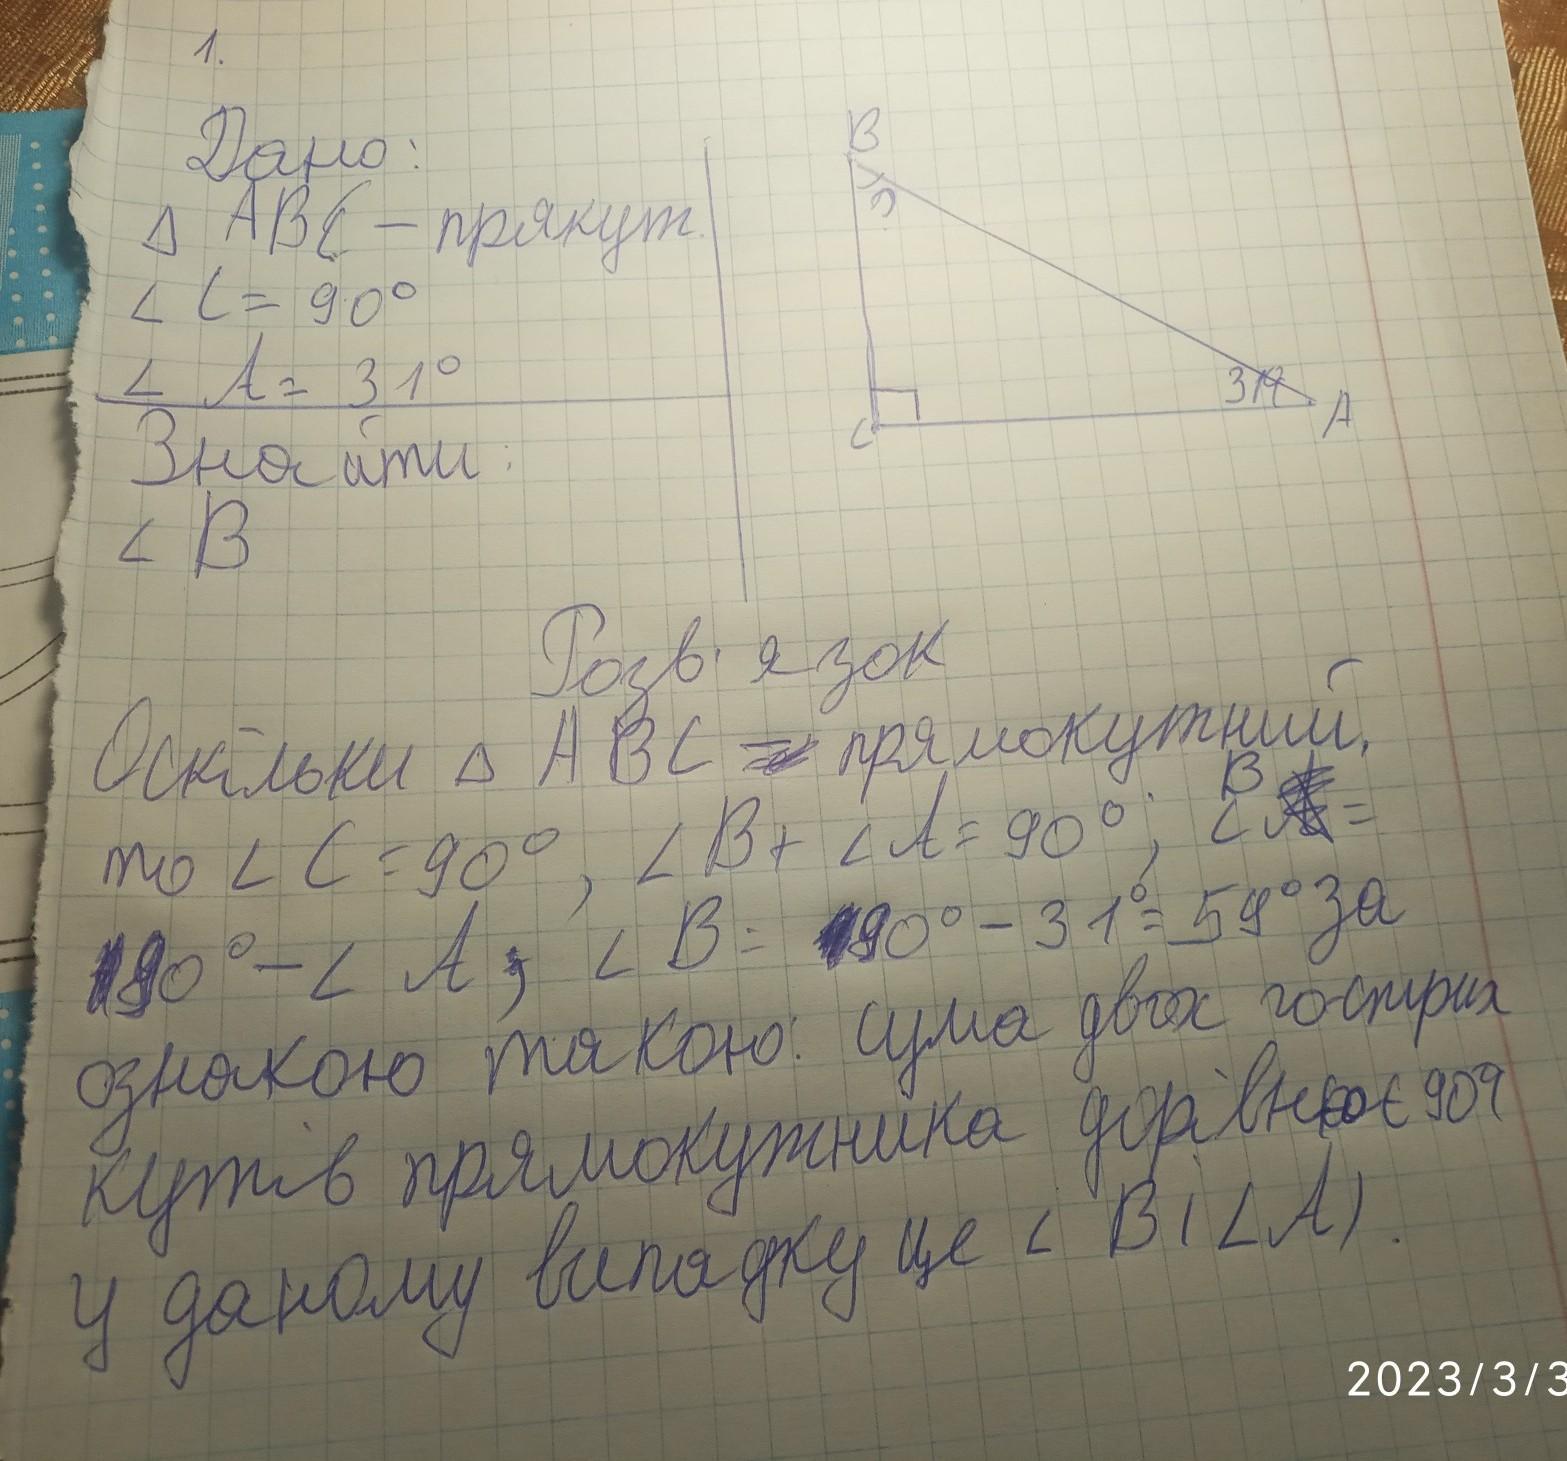 1.
Дано:
△ ABC – прякут.
∠ C = 90°
∠ A = 31°
Знайти:
∠ B
B
?
C
31°
A
Розв'язок
Оскільки △ ABC – прямокутний,
то ∠ C = 90°, ∠ B + ∠ A = 90°; ∠ B =
90° – ∠ A; ∠ B = 90° – 31° = 59° за
ознакою такою: сума двох гострих
кутів прямокутника дорівнює 90°
у даному випадку це ∠ B i ∠ A).
2023/3/3